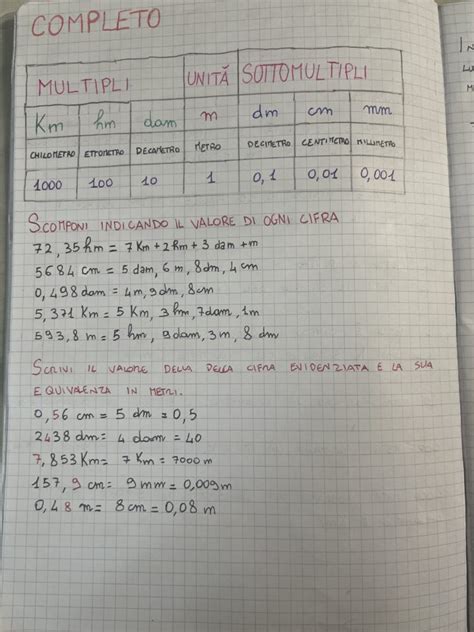 COMPLETO
MULTIPLI UNITÀ SOTTOMULTIPLI
Km hm dam m dm cm mm
CHILOMETRO ETTOMETRO DECAMETRO METRO DECIMETRO CENTIMETRO MILLIMETRO
1000 100 10 1 0,1 0,01 0,001
SCOMPONI INDICANDO IL VALORE DI OGNI CIFRA
72,35hm = 7 Km + 2 hm + 3 dam + m
5684 cm = 5 dam, 6 m, 8 dm, 4 cm
0,498 dam = 4m, 9 dm, 8cm
5,371 Km = 5 Km, 3 hm, 7 dam, 1m
593,8 m = 5 hm, 9 dam, 3 m, 8 dm
SCRIVI IL VALORE DELLA DELLA CIFRA EVIDENZIATA E LA SUA
EQUIVALENZA IN METRI.
0,56 cm = 5 dm = 0,5
2438 dm = 4 dam = 40
7,853 Km = 7 Km = 7000 m
157,9 cm = 9 mm = 0,009 m
0,48 m = 8 cm = 0,08 m